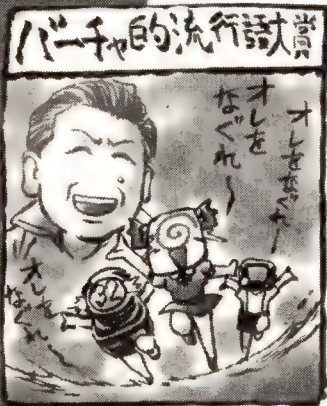 バーチャ的流行語大賞
オレをなぐれー
オレを
なぐれ〜
オレを
なぐれ